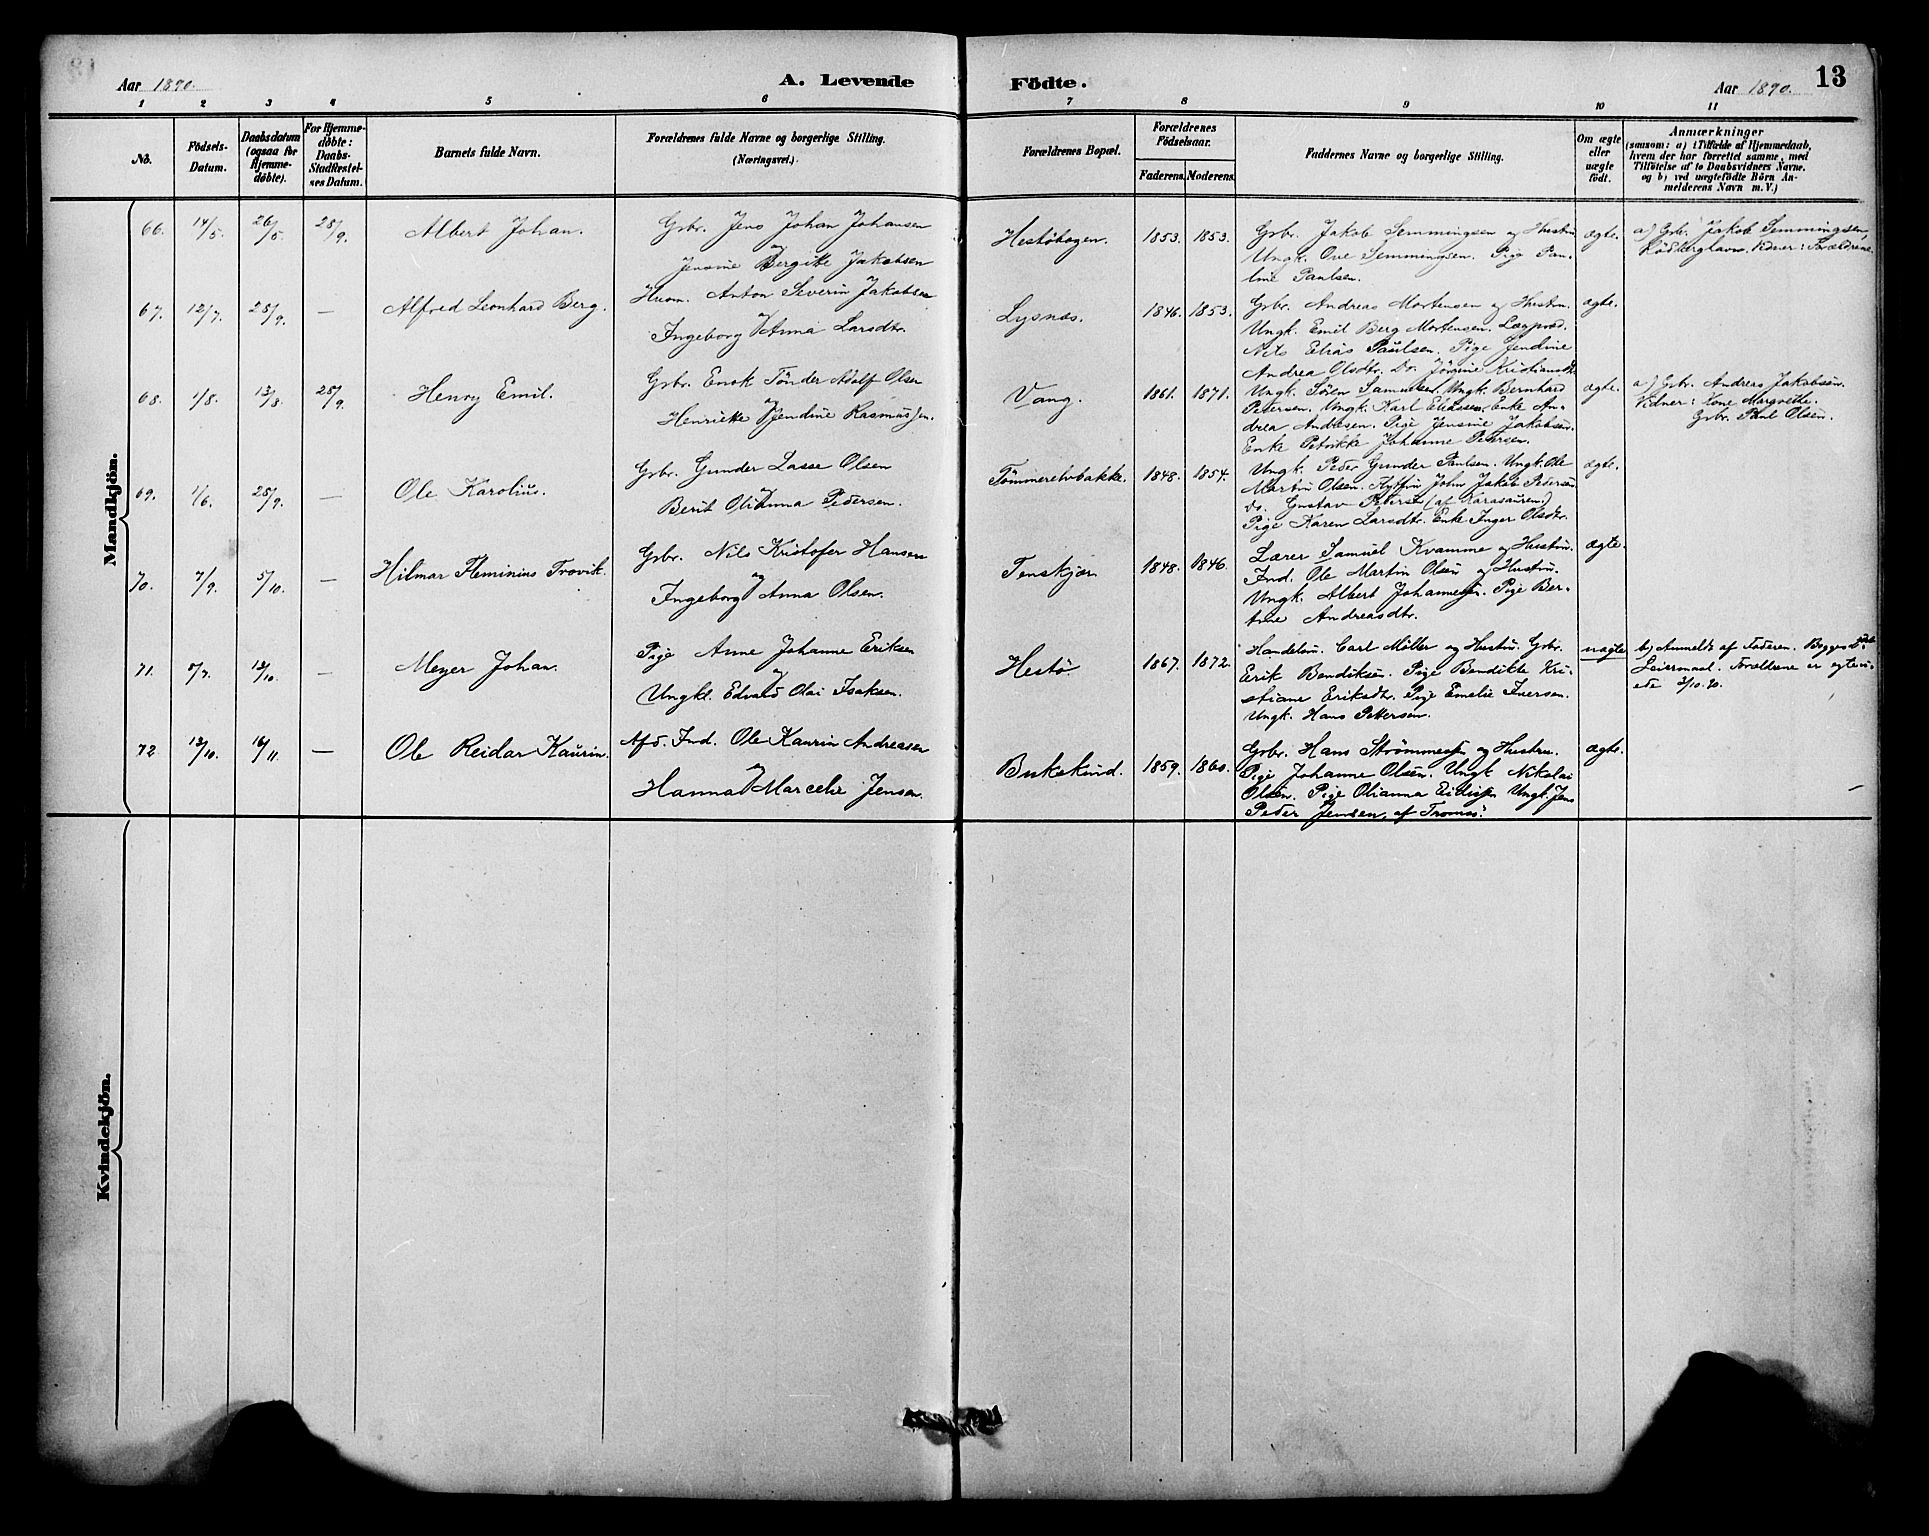 Aar 1890. A. Levende Födte. Aar 1890. 13
1 2 3 4 5 6 7 8 9 10 11
No.
Födsels-Datum.
Daabsdatum (ogsaa for Hjemme-døbte).
For Hjemme-døbte: Daabs-Stadfæstel-ses Datum.
Barnets fulde Navn.
Forældrenes fulde Navne og borgerlige Stilling. (Næringsvei.)
Forældrenes Bopæl.
Forældrenes Födselsaar.
Faderens. Moderens.
Faddernes Navne og borgerlige Stilling.
Om ægte eller uægte født.
Anmærkninger
(saasom: a) i Tilfælde af Hjemmedaab,
hvem der har forrettet samme, med
Tilføielse af to Daabsvidners Navne.
og b) ved uægtefödte Börn An-
melderens Navn m.V.)
Mandkjön.
66. 14/5. 26/5. 28/9. Albert Johan.
Gbr. Jens Johan Johansen
og
Jensine Bergitte Jakobsen
Hestöbogen. 1853. 1853.
Gbr. Jakob Semmingsen og Hustru
Ungk. Ove Semmingsen. Pige Pau-
line Paulsen.
ægte.
a) Gbr. Jakob Semmingsen,
Rödberghavn. Vidner: Forældrene.
67. 12/7. 28/9. — Alfred Leonhard Berg.
Husm. Anton Severin Jakobsen
og
Ingeborg Anna Larsdtr.
Lysnæs. 1846. 1853.
Gbr. Andreas Mortensen og Hustru.
Ungk. Emil Berg Mortensen. Lægpræd.
Nils Elias Paulsen. Pige Jendine
Andrea Olsdtr. Do. Jörgine Kristiansdtr.
ægte.
68. 1/8. 13/8. 28/9. Henry Emil.
Gbr. Enok Tönder Adolf Olsen
og
Henriette Jendine Rasmussen.
Vang. 1861. 1871.
Ungk. Sören Samuelsen. Ungk. Bernhard
Petersen. Ungk. Karl Eliassen. Enke An-
drea Andresen. Pige Jensine Jakobsen.
Enke Petrikke Johanne Petersen.
ægte.
a) Gbr. Andreas Jakobsen.
Vidner: Kone Margrethe.
Gbr. Paul Olsen.
69. 1/6. 28/9. — Ole Karolius.
Gbr. Gunder Lasse Olsen
og
Berit Olianna Pedersen.
Tömmerelvbakke. 1848. 1854.
Ungk. Peder Gunder Paulsen. Ungk. Ole
Martin Olsen. John Jakob Pedersen
Do. Gustav Peters (af Karasauren.)
Pige Karen Larsdtr. Enke Inger Olsdtr.
ægte.
70. 7/9. 5/10. — Hilmar Fleminius Trovik.
Gbr. Nils Kristofer Hansen
og
Ingeborg Anna Olsen.
Tenskjær 1848. 1846.
Lærer Samuel Kvamme og Hustru.
Ind. Ole Martin Olsen og Hustru.
Ungk. Albert Johannesen. Pige Ber-
tine Andreasdtr.
ægte.
71. 12/10. — Meyer Johan.
Pige Anne Johanne Eriksen
og
Ungkl. Edvard Olai Isaksen.
Hestö 1867. 1872.
Handelsm. Carl Möller og Hustru. Gbr.
Erik Bendiksen. Pige Bendikte Kri-
stiane Eriksdtr. Pige Emelie Iversen.
Ungk. Hans Pettersen.
uægte
b) Anmeldt af Faderen. Begges 1ste
Leiermaal. Forældrene er egtevi-
ede 3/10.90.
72. 12/10. 16/11. — Ole Reidar Kaurin.
Afd. Ind. Ole Kaurin Andreasen
og
Hanna Marcelie Jensen.
Bukskind. 1859. 1860.
Gbr. Hans Strömmesen og Hustru.
Pige Johanne Olsen. Ungk. Nikolai
Olsen. Pige Olianna Eidissen. Ungk. Jens
Peder Jensen, af Tromsö.
ægte.
Kvindekjön.